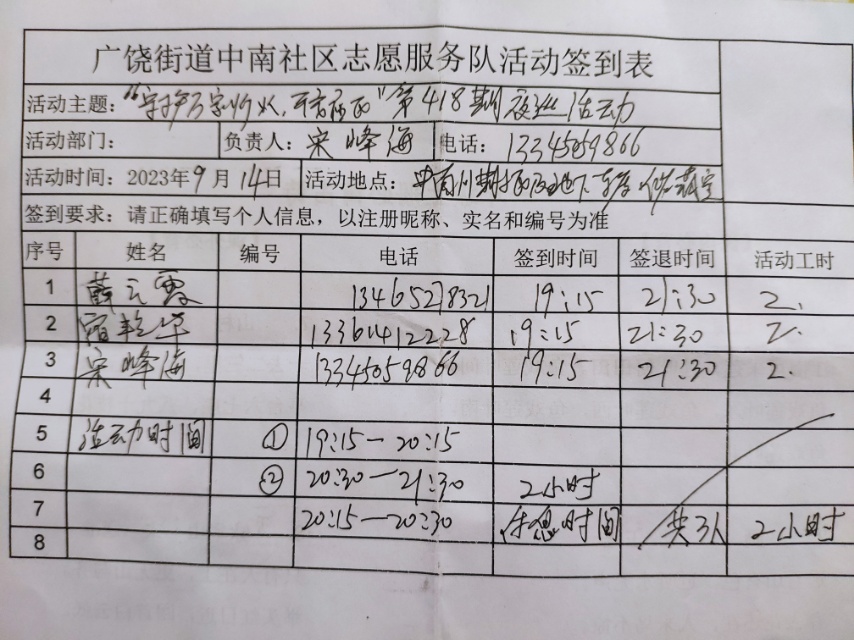 广饶街道中南社区志愿服务队活动签到表
活动主题：“ 第418期夜巡活动
活动部门： 负责人：宋峰海 电话：13345059866
活动时间：2023年9月14日 活动地点：
签到要求：请正确填写个人信息，以注册昵称、实名和编号为准
序号 姓名 编号 电话 签到时间 签退时间 活动工时
1 薛元霞 13465278321 19:15 21:30 2.
2 13361412228 19:15 21:30 2.
3 宋峰海 13345059866 19:15 21:30 2
4
5 活动时间 ① 19:15—20:15
6 ② 20:30—21:30 2小时
7 20:15—20:30 休息时间 共3人 2小时
8